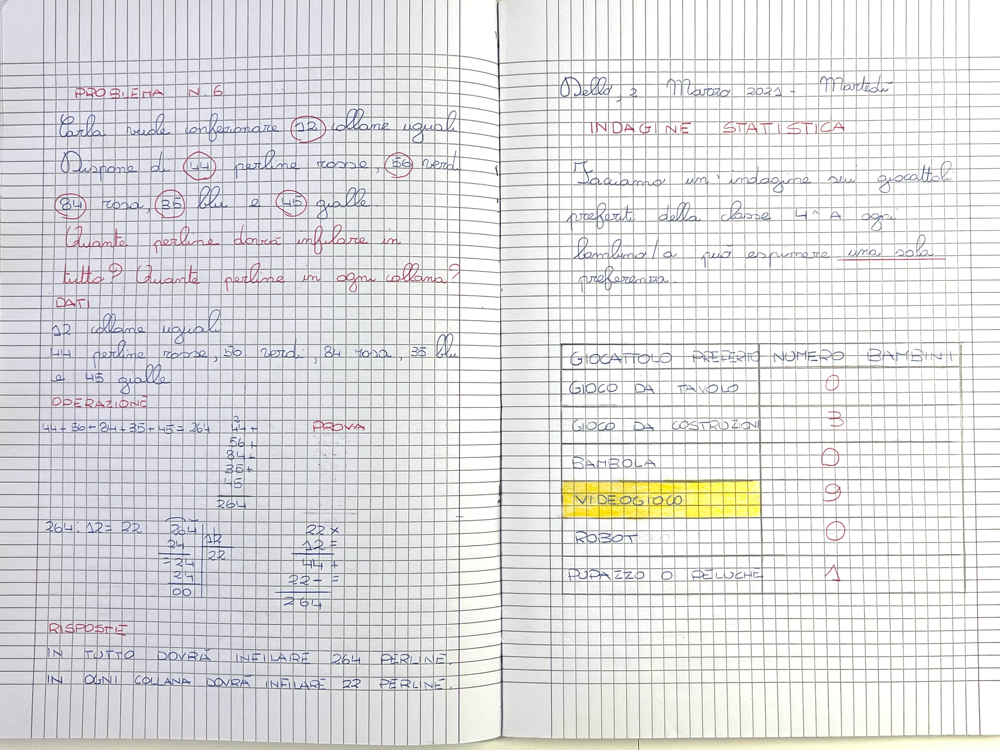 PROBLEMA N. 6
Carla vuole confezionare 12 collane uguali.
Dispone di 44 perline rosse, 56 verdi
84 rosa, 35 blu e 45 gialle
Quante perline dovrà infilare in
tutto? Quante perline in ogni collana?
DATI
12 collane uguali
44 perline rosse, 56 verdi, 84 rosa, 35 blu
e 45 gialle
OPERAZIONE
44+56+84+35+45=264
2
44+
56+
84+
35+
45
264
PROVA
264:12=22
264
12
24
22
=24
24
00
22×
12=
44+
22-=
264
RISPOSTE
IN TUTTO DOVRÀ INFILARE 264 PERLINE.
IN OGNI COLLANA DOVRÀ INFILARE 22 PERLINE.
Dello, 2 Marzo 2021 - Martedì
INDAGINE STATISTICA
Facciamo un'indagine sui giocattoli
preferiti della classe 4^A ogni
bambino/a può esprimere una sola
preferenza.
GIOCATTOLO PREFERITO NUMERO BAMBINI
GIOCO DA TAVOLO 0
GIOCO DA COSTRUZIONI 3
BAMBOLA 0
VIDEOGIOCO 9
ROBOT 0
PUPAZZO O PELUCHE 1